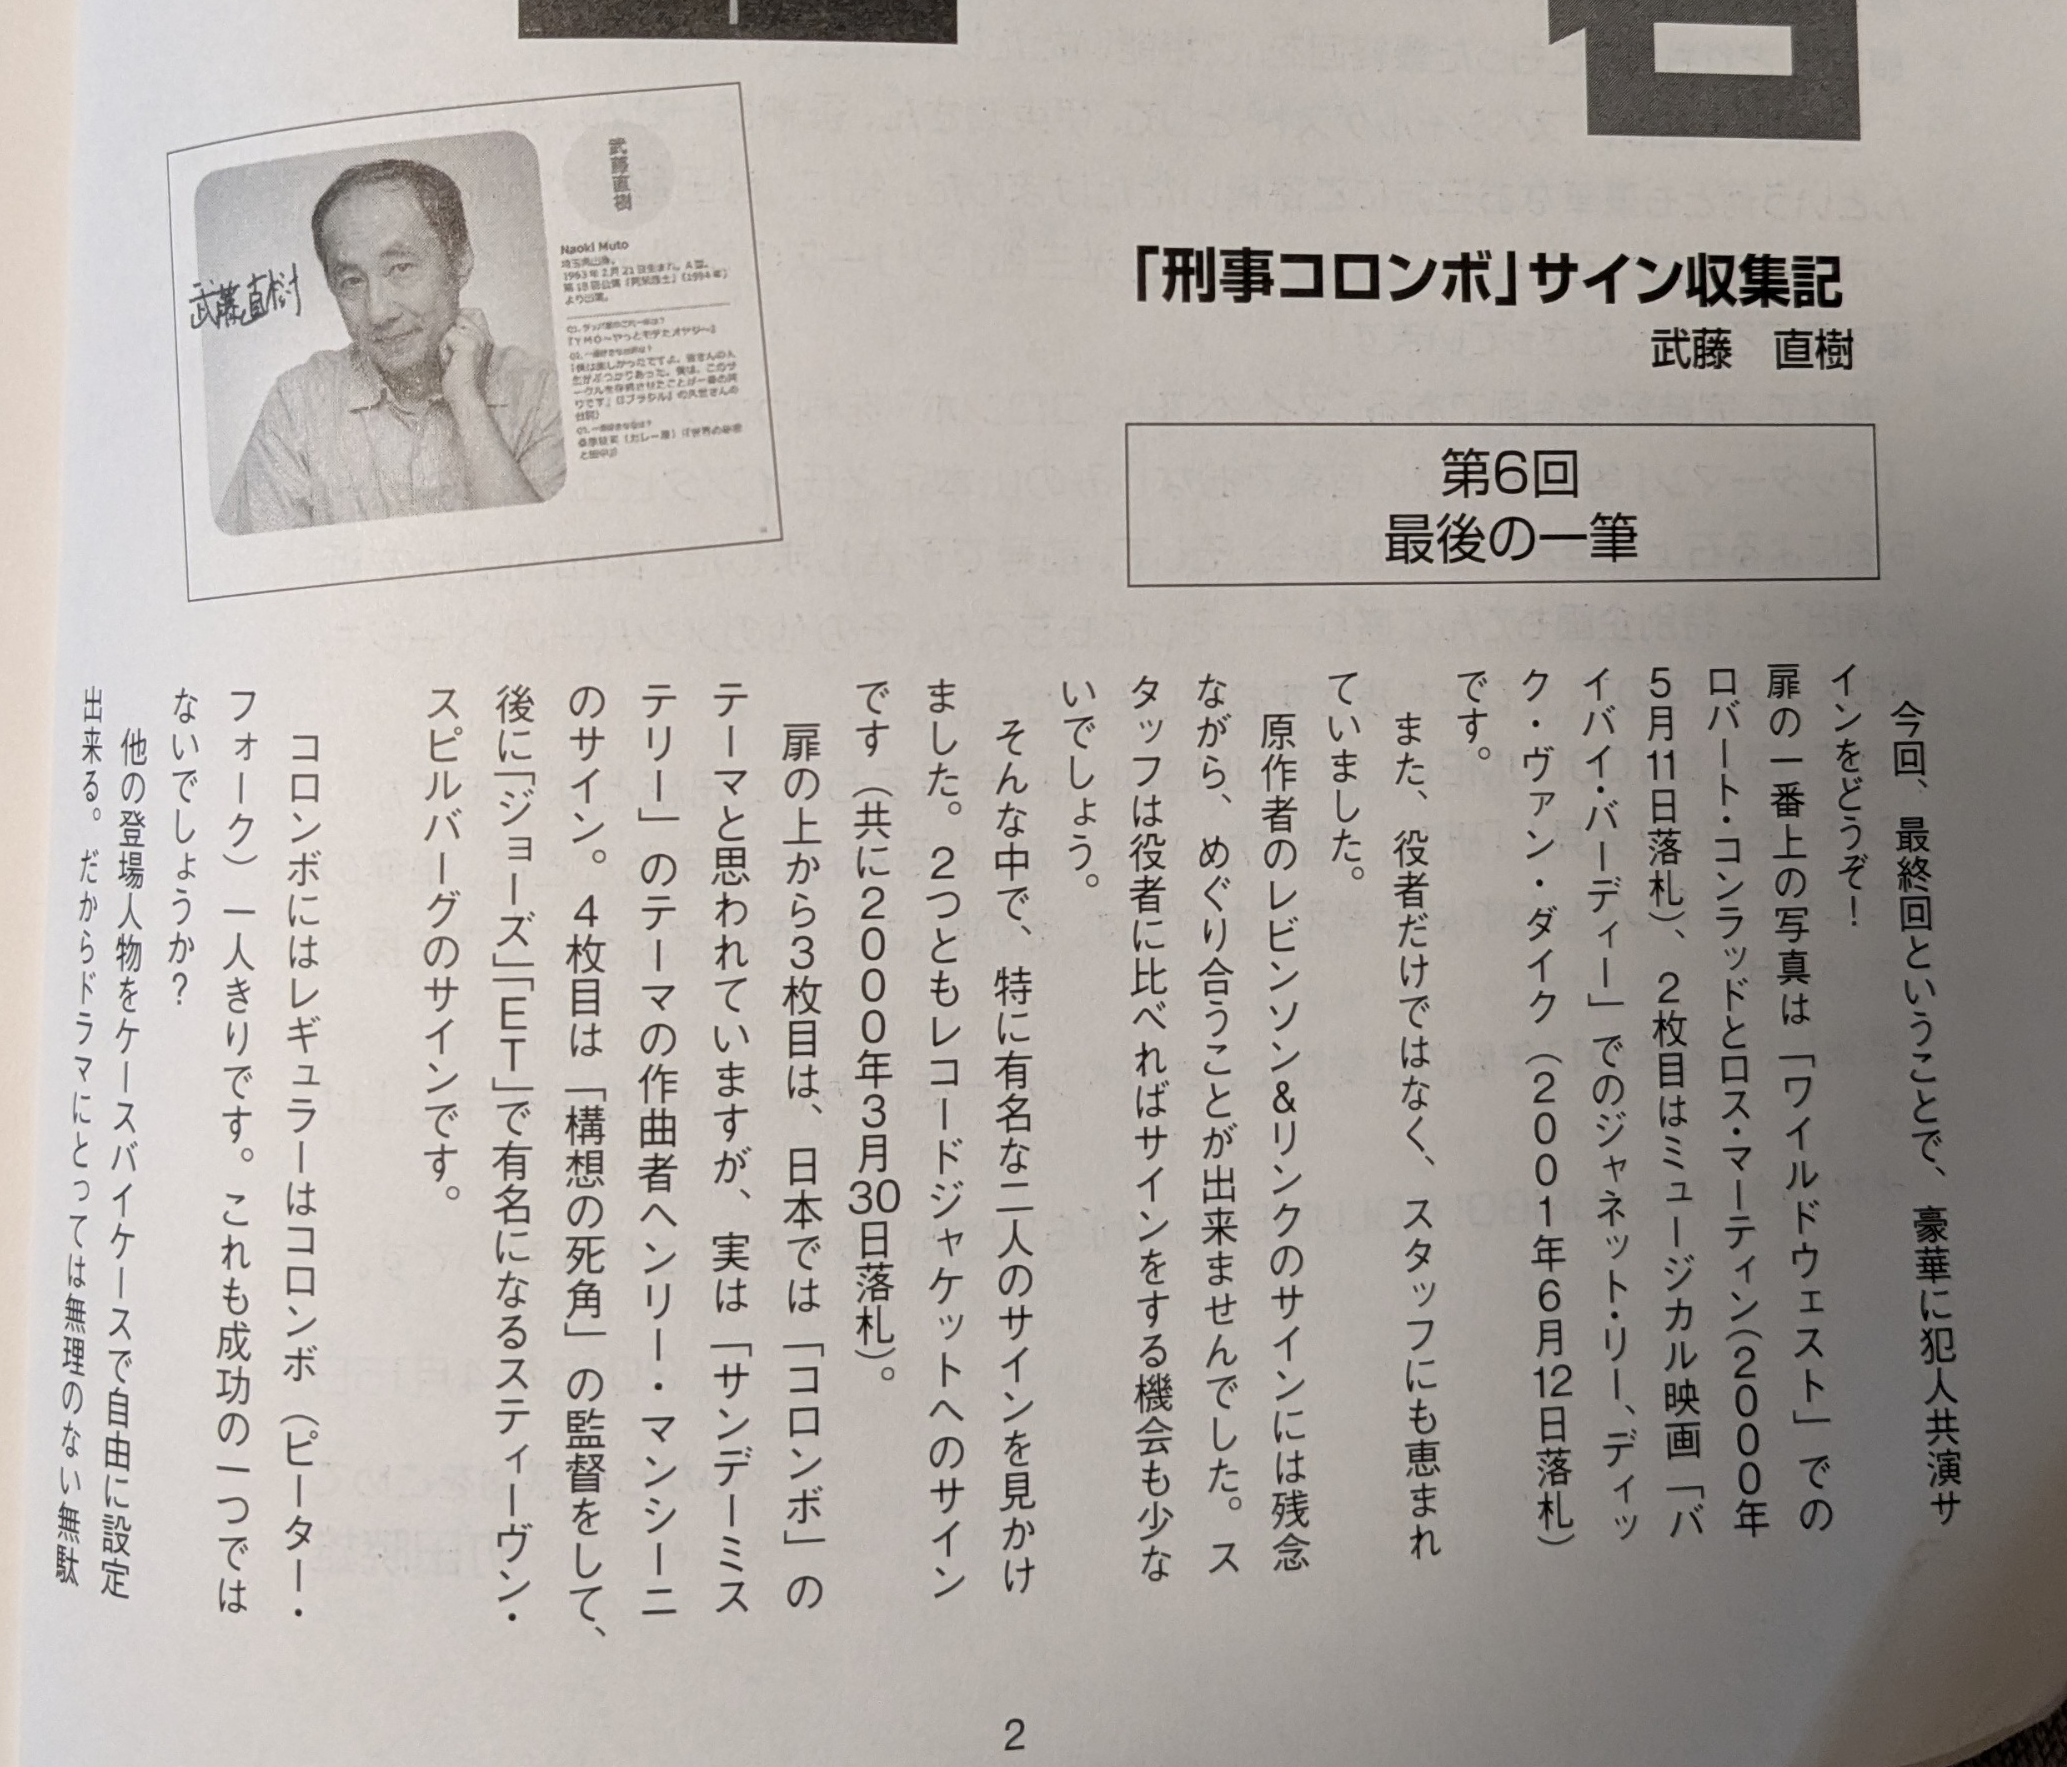 「刑事コロンボ」サイン収集記
武藤　直樹
第6回
最後の一筆
武藤直樹
武藤直樹
Naoki Muto
埼玉県出身。
1963年2月21日生まれ。A型。
より出演。
今回、最終回ということで、豪華に犯人共演サ
インをどうぞ！
扉の一番上の写真は「ワイルドウェスト」での
ロバート・コンラッドとロス・マーティン（2000年
5月11日落札）、2枚目はミュージカル映画「バ
イバイ・バーディー」でのジャネット・リー、ディッ
ク・ヴァン・ダイク（2001年6月12日落札）
です。
また、役者だけではなく、スタッフにも恵まれ
ていました。
原作者のレビンソン&リンクのサインには残念
ながら、めぐり合うことが出来ませんでした。ス
タッフは役者に比べればサインをする機会も少な
いでしょう。
そんな中で、特に有名な二人のサインを見かけ
ました。2つともレコードジャケットへのサイン
です（共に2000年3月30日落札）。
扉の上から3枚目は、日本では「コロンボ」の
テーマと思われていますが、実は「サンデーミス
テリー」のテーマの作曲者ヘンリー・マンシーニ
のサイン。4枚目は「構想の死角」の監督をして、
後に「ジョーズ」「ET」で有名になるスティーヴン・
スピルバーグのサインです。
コロンボにはレギュラーはコロンボ（ピーター・
フォーク）一人きりです。これも成功の一つでは
ないでしょうか？
他の登場人物をケースバイケースで自由に設定
出来る。だからドラマにとっては無理のない無駄
2